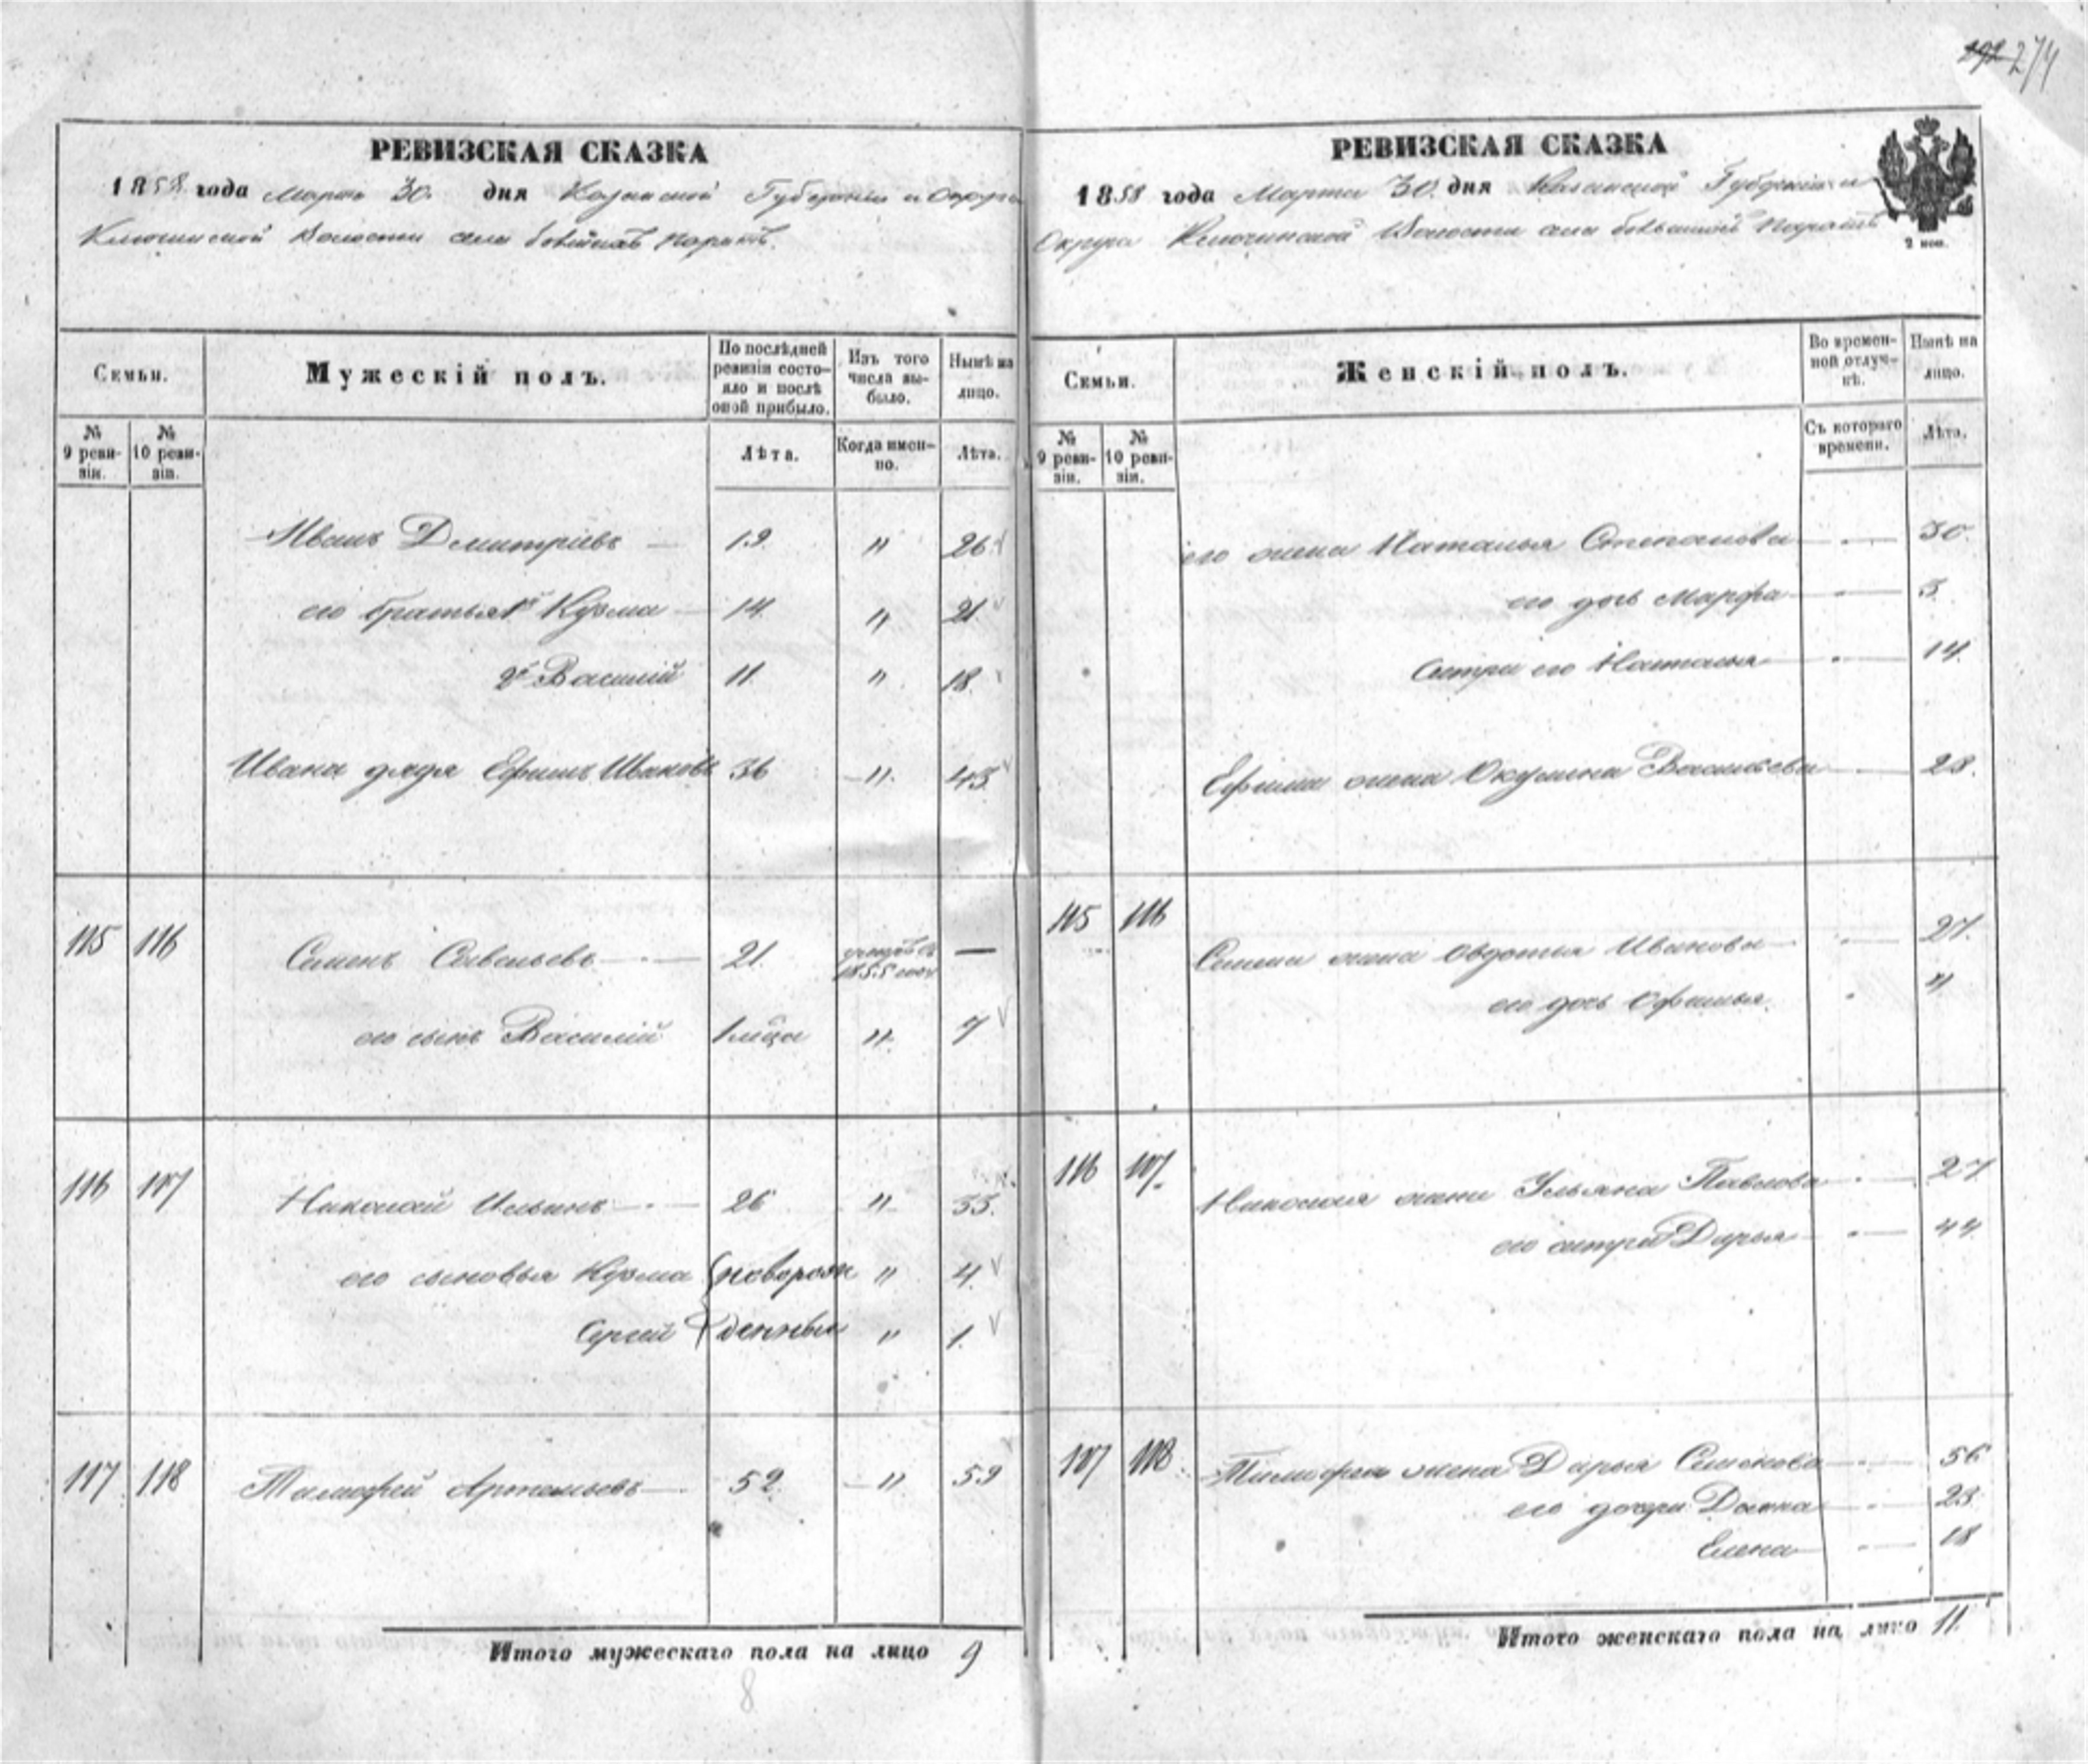 274
РЕВИЗСКАЯ СКАЗКА
1858 года Марта 30. дня Казанской Губернии и Округа
Ключинской Волости села Паратъ.
Семьи.
Мужескій полъ.
По послѣдней ревизіи состояло и послѣ оной прибыло.
Изъ того числа выбыло.
Нынѣ на лицо.
№ 9 ревизіи.
№ 10 ревизіи.
Лѣта.
Когда именно.
Лѣта.
Иванъ Дмитріевъ — 19. " 26.
его братья 1й Кузма — 14. " 21.
2й Василій 11. " 18.
Ивана дядя Ефимъ Ивановъ 36 " 43.
115 116 Семенъ Савельевъ — 21. 1855 —
его сынъ Василій 1 мѣца " 7
116 117 Николай Ильинъ — 26 " 33.
его сыновья Кузма новорож " 4.
Сергей денные " 1.
117 118 Тимофей Артемьевъ — 52. " 59
Итого мужескаго пола на лицо 9
8
РЕВИЗСКАЯ СКАЗКА
1858 года Марта 30. дня Казанской Губерніи и
Округа Ключинской Волости села Паратъ
2 коп.
Семьи.
Женскій полъ.
Во временной отлучкѣ.
Нынѣ на лицо.
№ 9 ревизіи.
№ 10 ревизіи.
Съ котораго времени.
Лѣта.
его жена Наталья Степанова — 30.
его дочь Марфа — 3.
сестра его Наталья — 14.
Ефима жена Окулина Васильева — 28.
115 116 Семена жена Овдотья Иванова — 27.
его дочь Офимья. 4
116 117. Николая жена Ульяна Павлова — 27.
его сестра Дарья — 44
117 118. Тимофея жена Дарья Семенова — 56
его дочери Домна — 23.
Елена — 18
Итого женскаго пола на лицо 11.